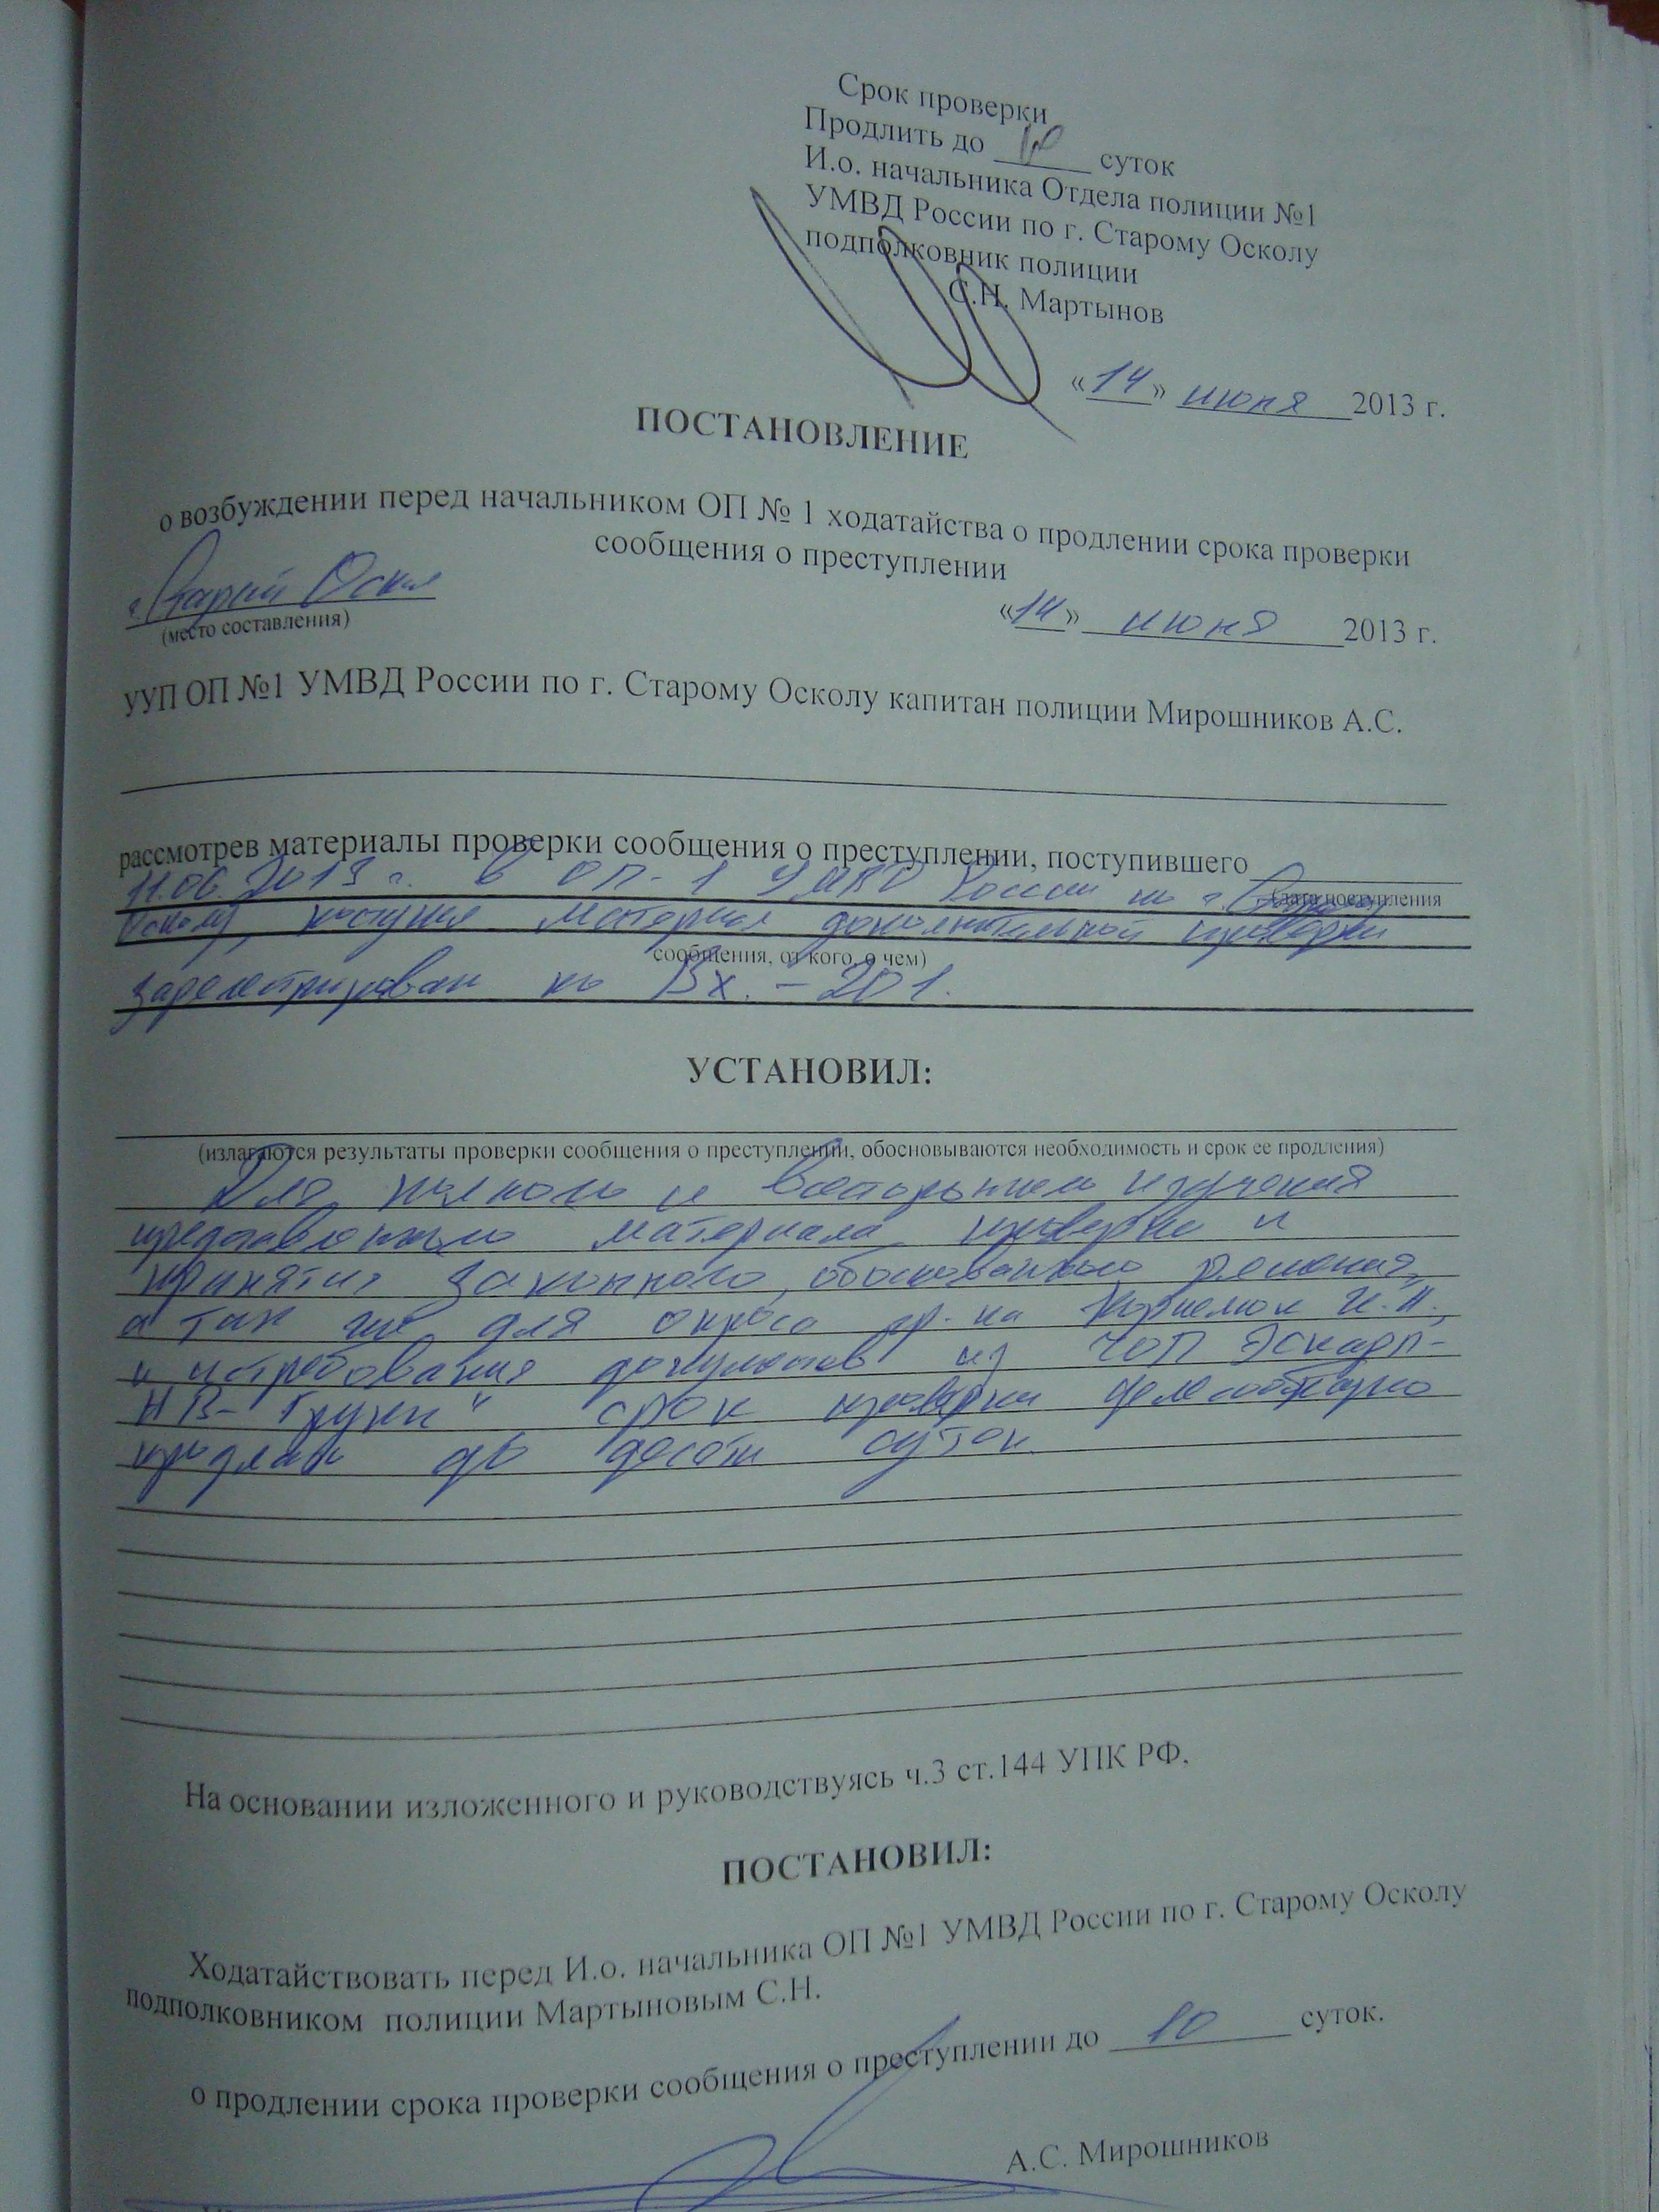 Срок проверки
Продлить до 10 суток
И.о. начальника Отдела полиции №1
УМВД России по г. Старому Осколу
подполковник полиции
С.Н. Мартынов
«14» июня 2013 г.
ПОСТАНОВЛЕНИЕ
о возбуждении перед начальником ОП № 1 ходатайства о продлении срока проверки
сообщения о преступлении
г. Старый Оскол
(место составления)
«14» июня 2013 г.
УУП ОП №1 УМВД России по г. Старому Осколу капитан полиции Мирошников А.С.
рассмотрев материалы проверки сообщения о преступлении, поступившего
11.06.2013 г. в ОП-1 УМВД России по г. Старому
(дата поступления
Осколу, поступил материал дополнительной проверки
сообщения, от кого, о чем)
зарегистрирован по Вх. - 201.
УСТАНОВИЛ:
(излагаются результаты проверки сообщения о преступлении, обосновываются необходимость и срок ее продления)
Для полного и всестороннего изучения
представленного материала проверки и
принятия законного, обоснованного решения,
а так же для опроса гр-на И.И.,
и истребования документов из ЧОП Эскадр-
НВ-Групп" срок проверки целесообразно
продлить до десяти суток.
На основании изложенного и руководствуясь ч.3 ст.144 УПК РФ,
ПОСТАНОВИЛ:
Ходатайствовать перед И.о. начальника ОП №1 УМВД России по г. Старому Осколу
подполковником полиции Мартыновым С.Н.
о продлении срока проверки сообщения о преступлении до 10 суток.
А.С. Мирошников